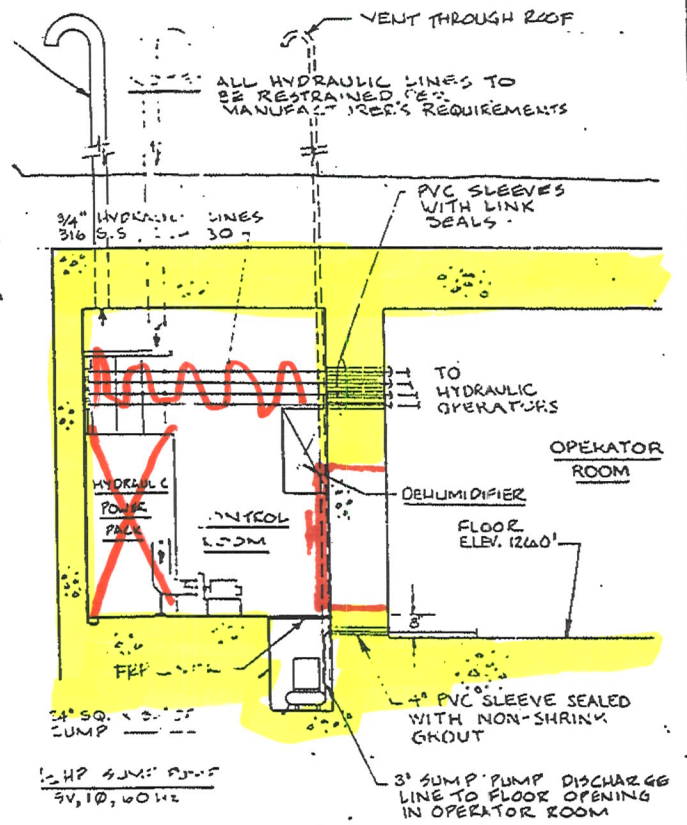 VENT THROUGH ROOF
ALL HYDRAULIC LINES TO
BE RESTRAINED PER
REQUIREMENTS
PVC SLEEVES
WITH LINK
SEALS
3/4" HYDRAULIC LINES
316 S.S
TO
HYDRAULIC
OPERATORS
OPERATOR
ROOM
HYDRAULIC
POWER
PACK
CONTROL
ROOM
DEHUMIDIFIER
FLOOR
ELEV.
8"
24" SQ.
SUMP
4" PVC SLEEVE SEALED
WITH NON-SHRINK
GROUT
HP SUMP PUMP
1Ø, 60 HZ
3" SUMP PUMP DISCHARGE
LINE TO FLOOR OPENING
IN OPERATOR ROOM